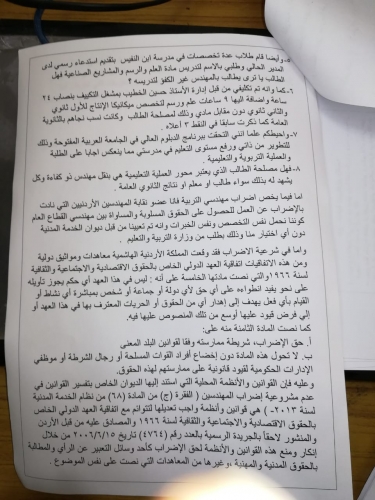 ٥-وأيضا قام طلاب عدة تخصصات في مدرسة ابن النفيس بتقديم استدعاء رسمي لدى
المدير الحالي وطلبي بالاسم لتدريس مادة العلم والرسم والمشاريع الصناعية فهل
الطالب يا ترى يطالب بالمهندس غير الكفو لتدريسه ؟
٦-كما وانه تم تكليفي من قبل إدارة الأستاذ حسين الخطيب بمشغل التكييف بنصاب ٢٤
ساعة واضافة اليها ٩ ساعات علم ورسم لتخصص ميكانيكا الإنتاج للأول ثانوي
والثاني ثانوي دون مقابل مادي وذلك لمصلحة الطالب وكانت نسب نجاهم بالثانوية
العامة كما ذكرت سابقا في النقط ٣ أعلاه .
٧-واحيطكم علما انني التحقت ببرنامج الدبلوم العالي في الجامعة العربية المفتوحة وذلك
للتطوير من ذاتي ورفع مستوى التعليم في مدرستي مما ينعكس اجابا على الطلبة
والعملية التربوية والتعليمية .
٨-فهل مصلحة الطالب الذي يعتبر محور العملية التعليمية هي بنقل مهندس ذو كفاءة وكل
يشهد له بذلك سواء طالب او معلم او نتائج الثانوي العامة .
اما فيما يخص اضراب مهندسي التربية فأن نقابة المهندسين الأردنيين التي نادت
بالإضراب عن العمل للحصول على الحقوق المسلوبة والمساواة بين مهندسي القطاع العام
كوننا نحمل نفس التخصص ونفس الخبرات وانه تم تعيينا من قبل ديوان الخدمة المدنية
دون أي اختيار منا وذلك بطلب من وزارة التربية والتعليم .
واما في شرعية الاضراب فقد وقعت المملكة الأردنية الهاشمية معاهدات ومواثيق دولية
ومن هذه الاتفاقيات اتفاقية العهد الدولي الخاص بالحقوق الاقتصادية والاجتماعية والثقافية
لسنة ١٩٦٦م والتي نصت مادتها الخامسة على أنه : ليس في هذا العهد أي حكم يجوز تأويله
على نحو يفيد انطواءه على حق لأي دولة أو جماعة أو شخص بمباشرة أي نشاط أو
القيام بأي فعل يهدف إلى إهدار أي من الحقوق أو الحريات المعترف بها في هذا العهد أو
إلى فرض قيود عليها أوسع من تلك المنصوص عليها فيه.
كما نصت المادة الثامنة منه على:
أ. حق الإضراب، شريطة ممارسته وفقا لقوانين البلد المعنى
ب. لا تحول هذه المادة دون إخضاع أفراد القوات المسلحة أو رجال الشرطة أو موظفي
الإدارات الحكومية لقيود قانونية على ممارستهم لهذه الحقوق.
وعليه فإن القوانين والأنظمة المحلية التي استند إليها الديوان الخاص بتفسير القوانين في
عدم مشروعية إضراب المهندسين ( الفقرة (ج) من المادة (٦٨) من نظام الخدمة المدنية
لسنة ٢٠١٣- ) هي قوانين وأنظمة واجب تعديلها لتتوائم مع اتفاقية العهد الدولي الخاص
بالحقوق الاقتصادية والاجتماعية والثقافية لسنة ١٩٦٦ والمصادق عليه من قبل الأردن
والمنشور لاحقاً بالجريدة الرسمية بالعدد رقم (٤٧٦٤) تاريخ ٢٠٠٦/٦/١٥ من خلال
إنكار ومنع هذه القوانين والأنظمة لحق الإضراب كأحد وسائل التعبير عن الرأي والمطالبة
بالحقوق المدنية والمهنية ,وغيرها من المعاهدات التي نصت على نفس الموضوع .